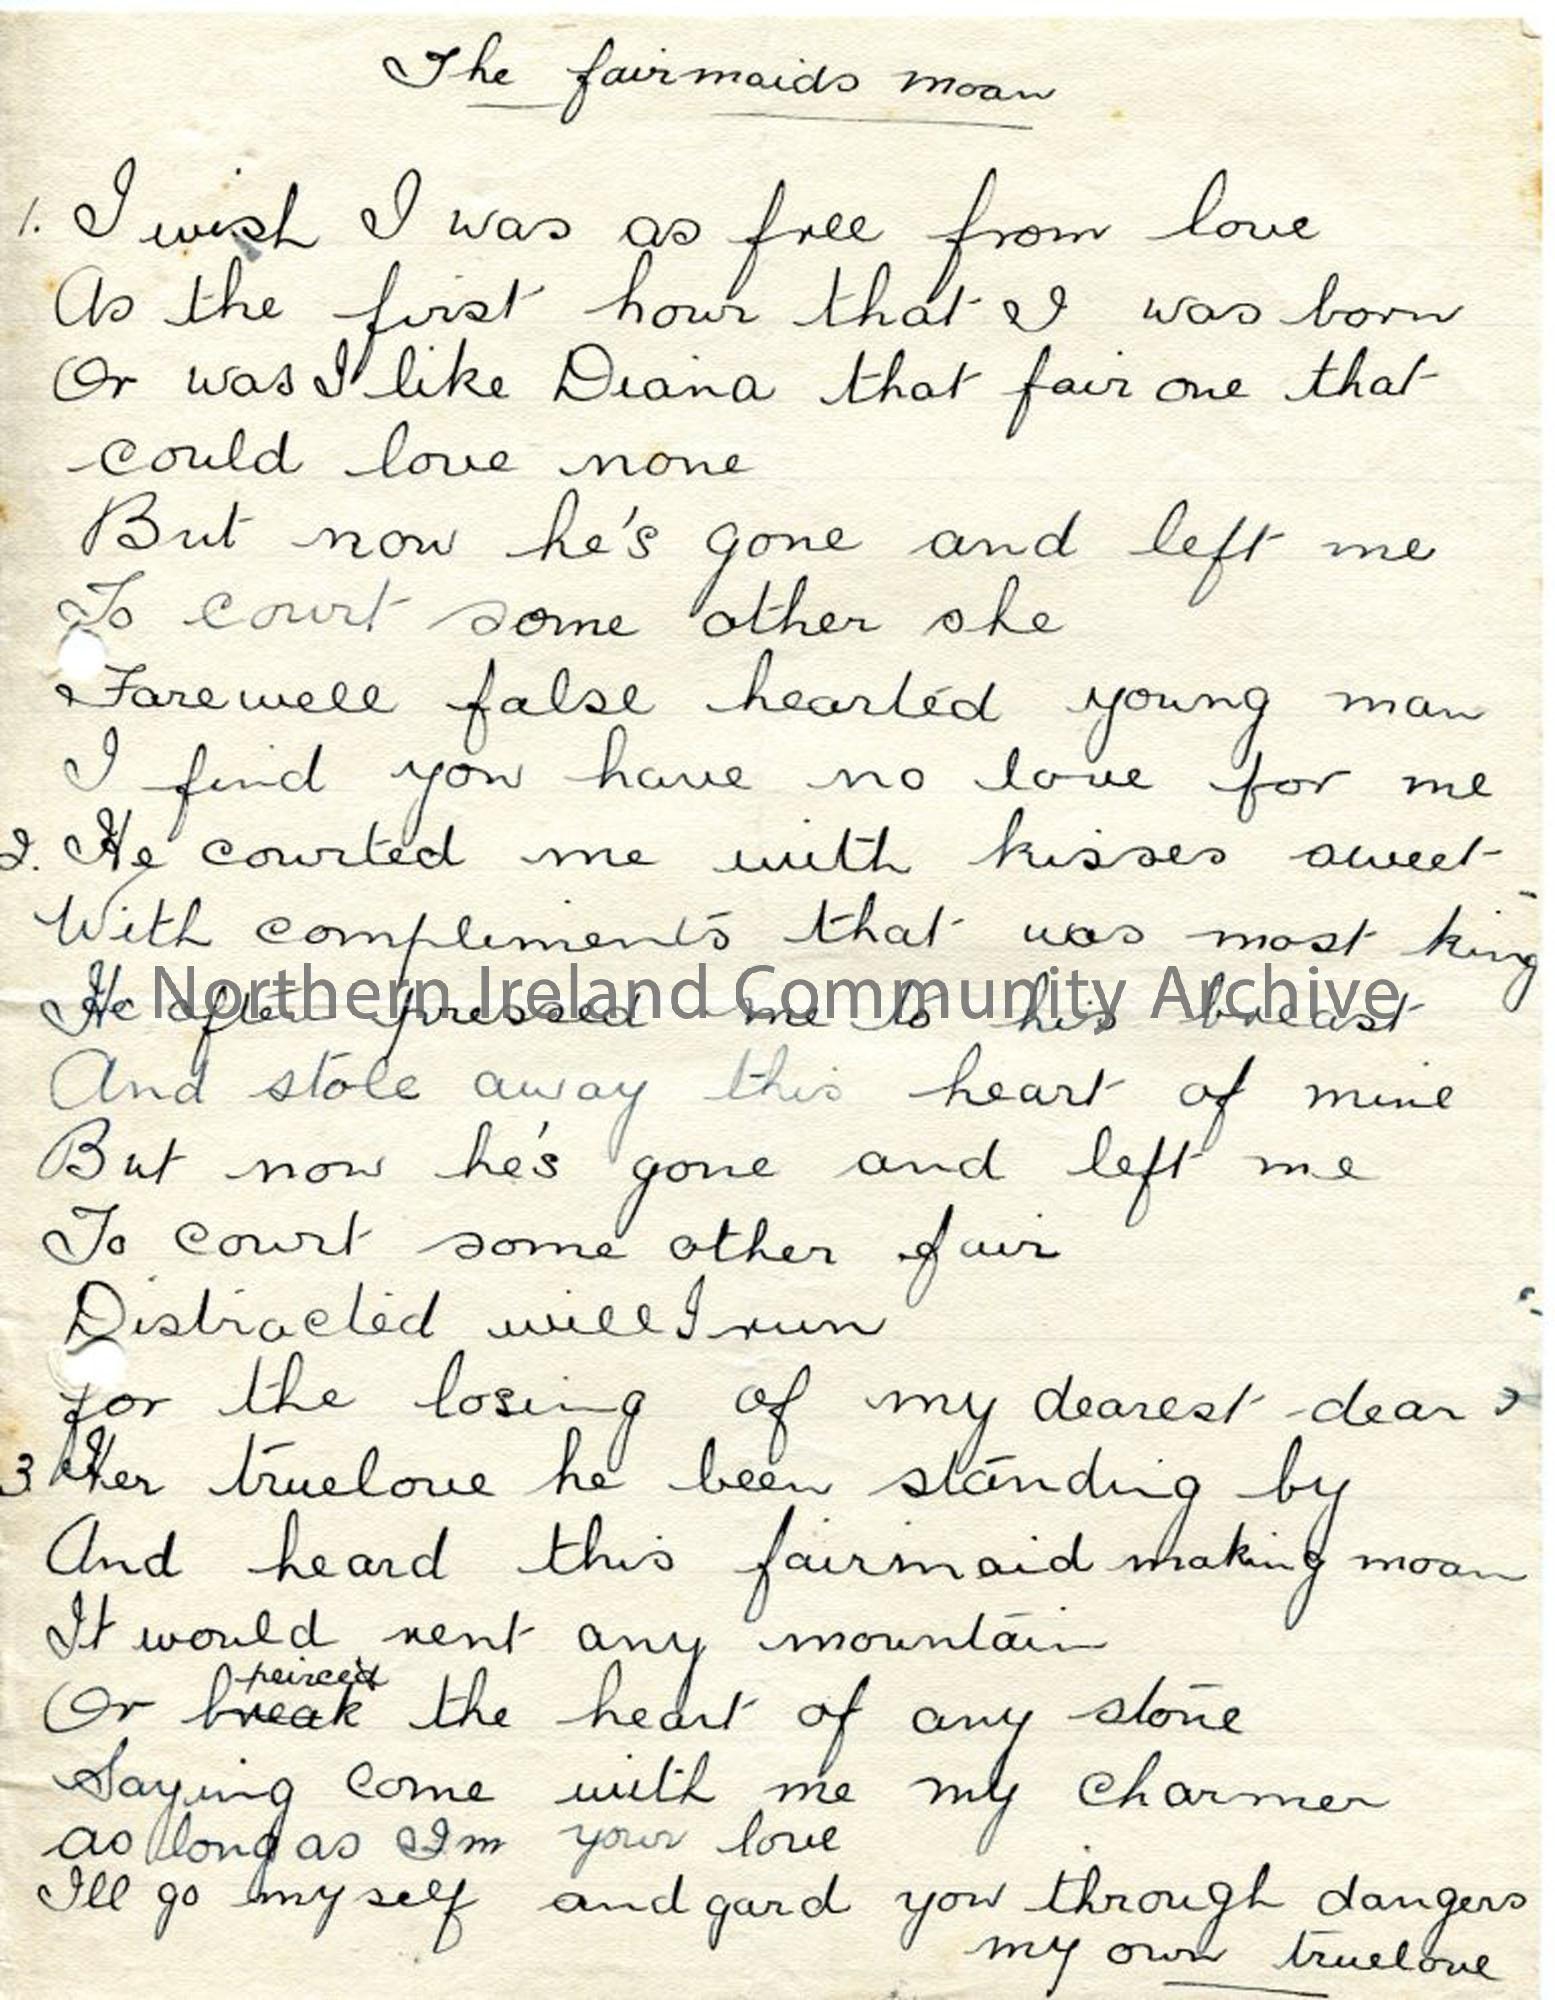 The fairmaids moan
1. I wish I was as free from love
As the first hour that I was born
Or was I like Diana that fair one that
could love none
But now he's gone and left me
To court some other she
Farewell false hearted young man
I find you have no love for me
2. He courted me with kisses sweet
With compliments that was most king
He often pressed me to his breast
Northern Ireland Community Archive
And stole away this heart of mine
But now he's gone and left me
To court some other fair
Distracted will I run
for the losing of my dearest dear
3 Her truelove he been standing by
And heard this fairmaid making moan
It would rent any mountain
peirced
Or break the heart of any stone
Saying come with me my charmer
as long as I'm your love
I'll go myself and gard you through dangers
my own truelove